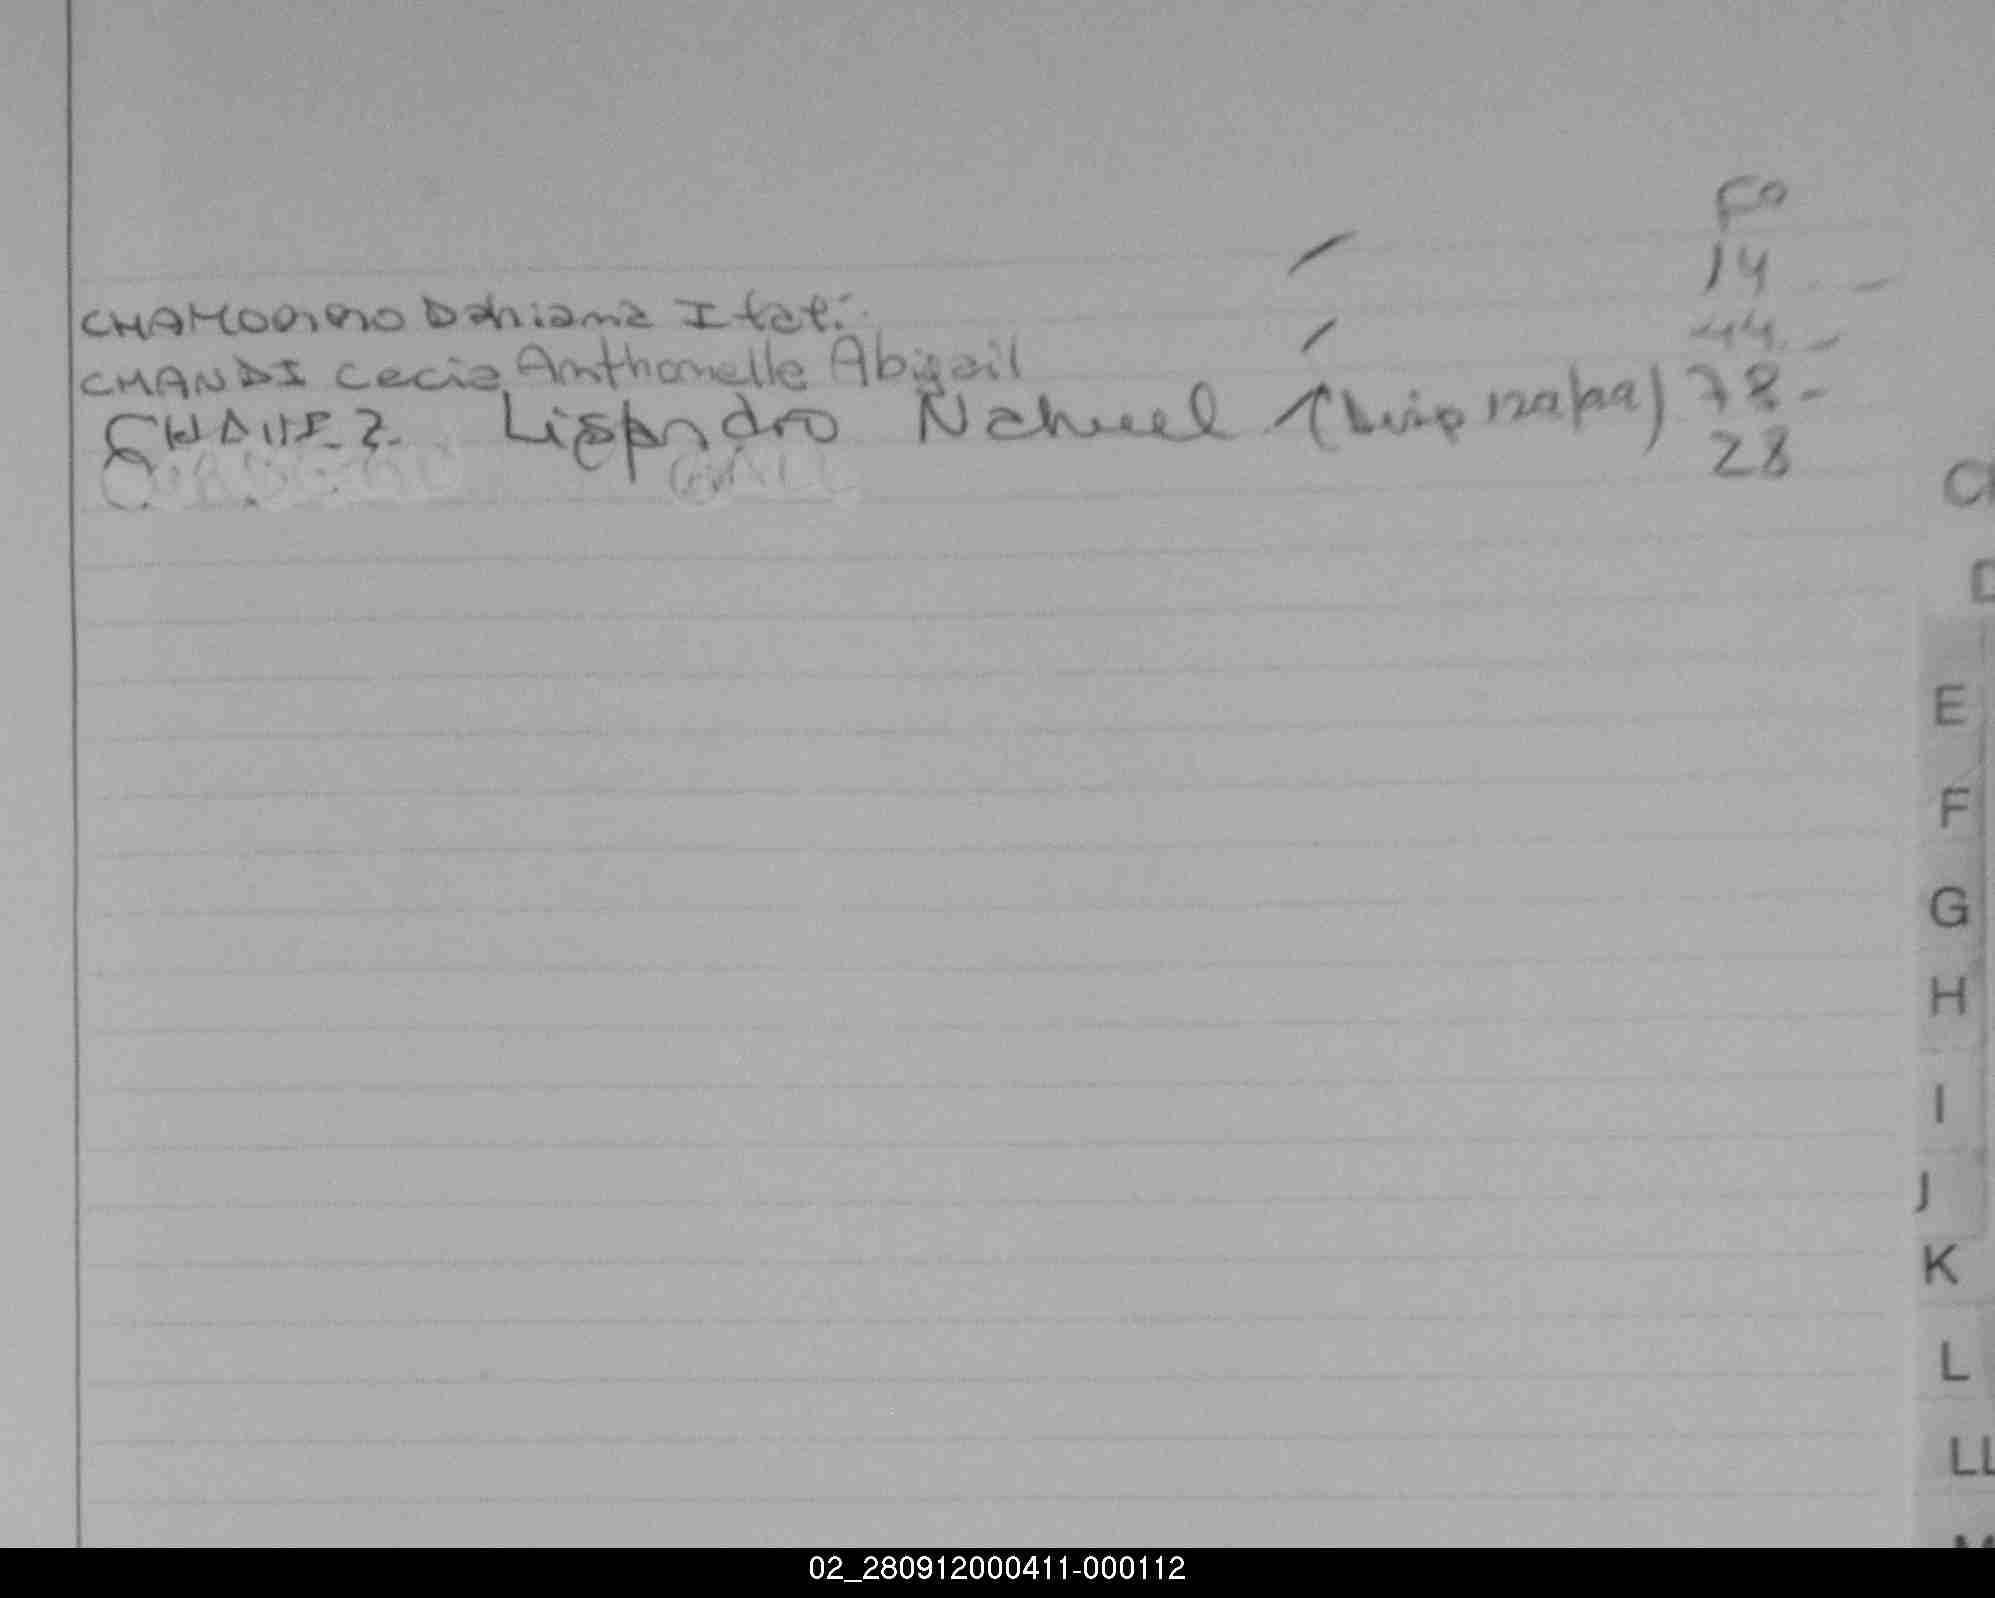 Fo
14
CHAMORRO Dahiana Itatí.
44
CHANDI Cecia Anthonelle Abigail
78
CHAVEZ Lisandro Nahuel
28
CH
D
E
F
G
H
I
J
K
L
LL
02_280912000411-000112